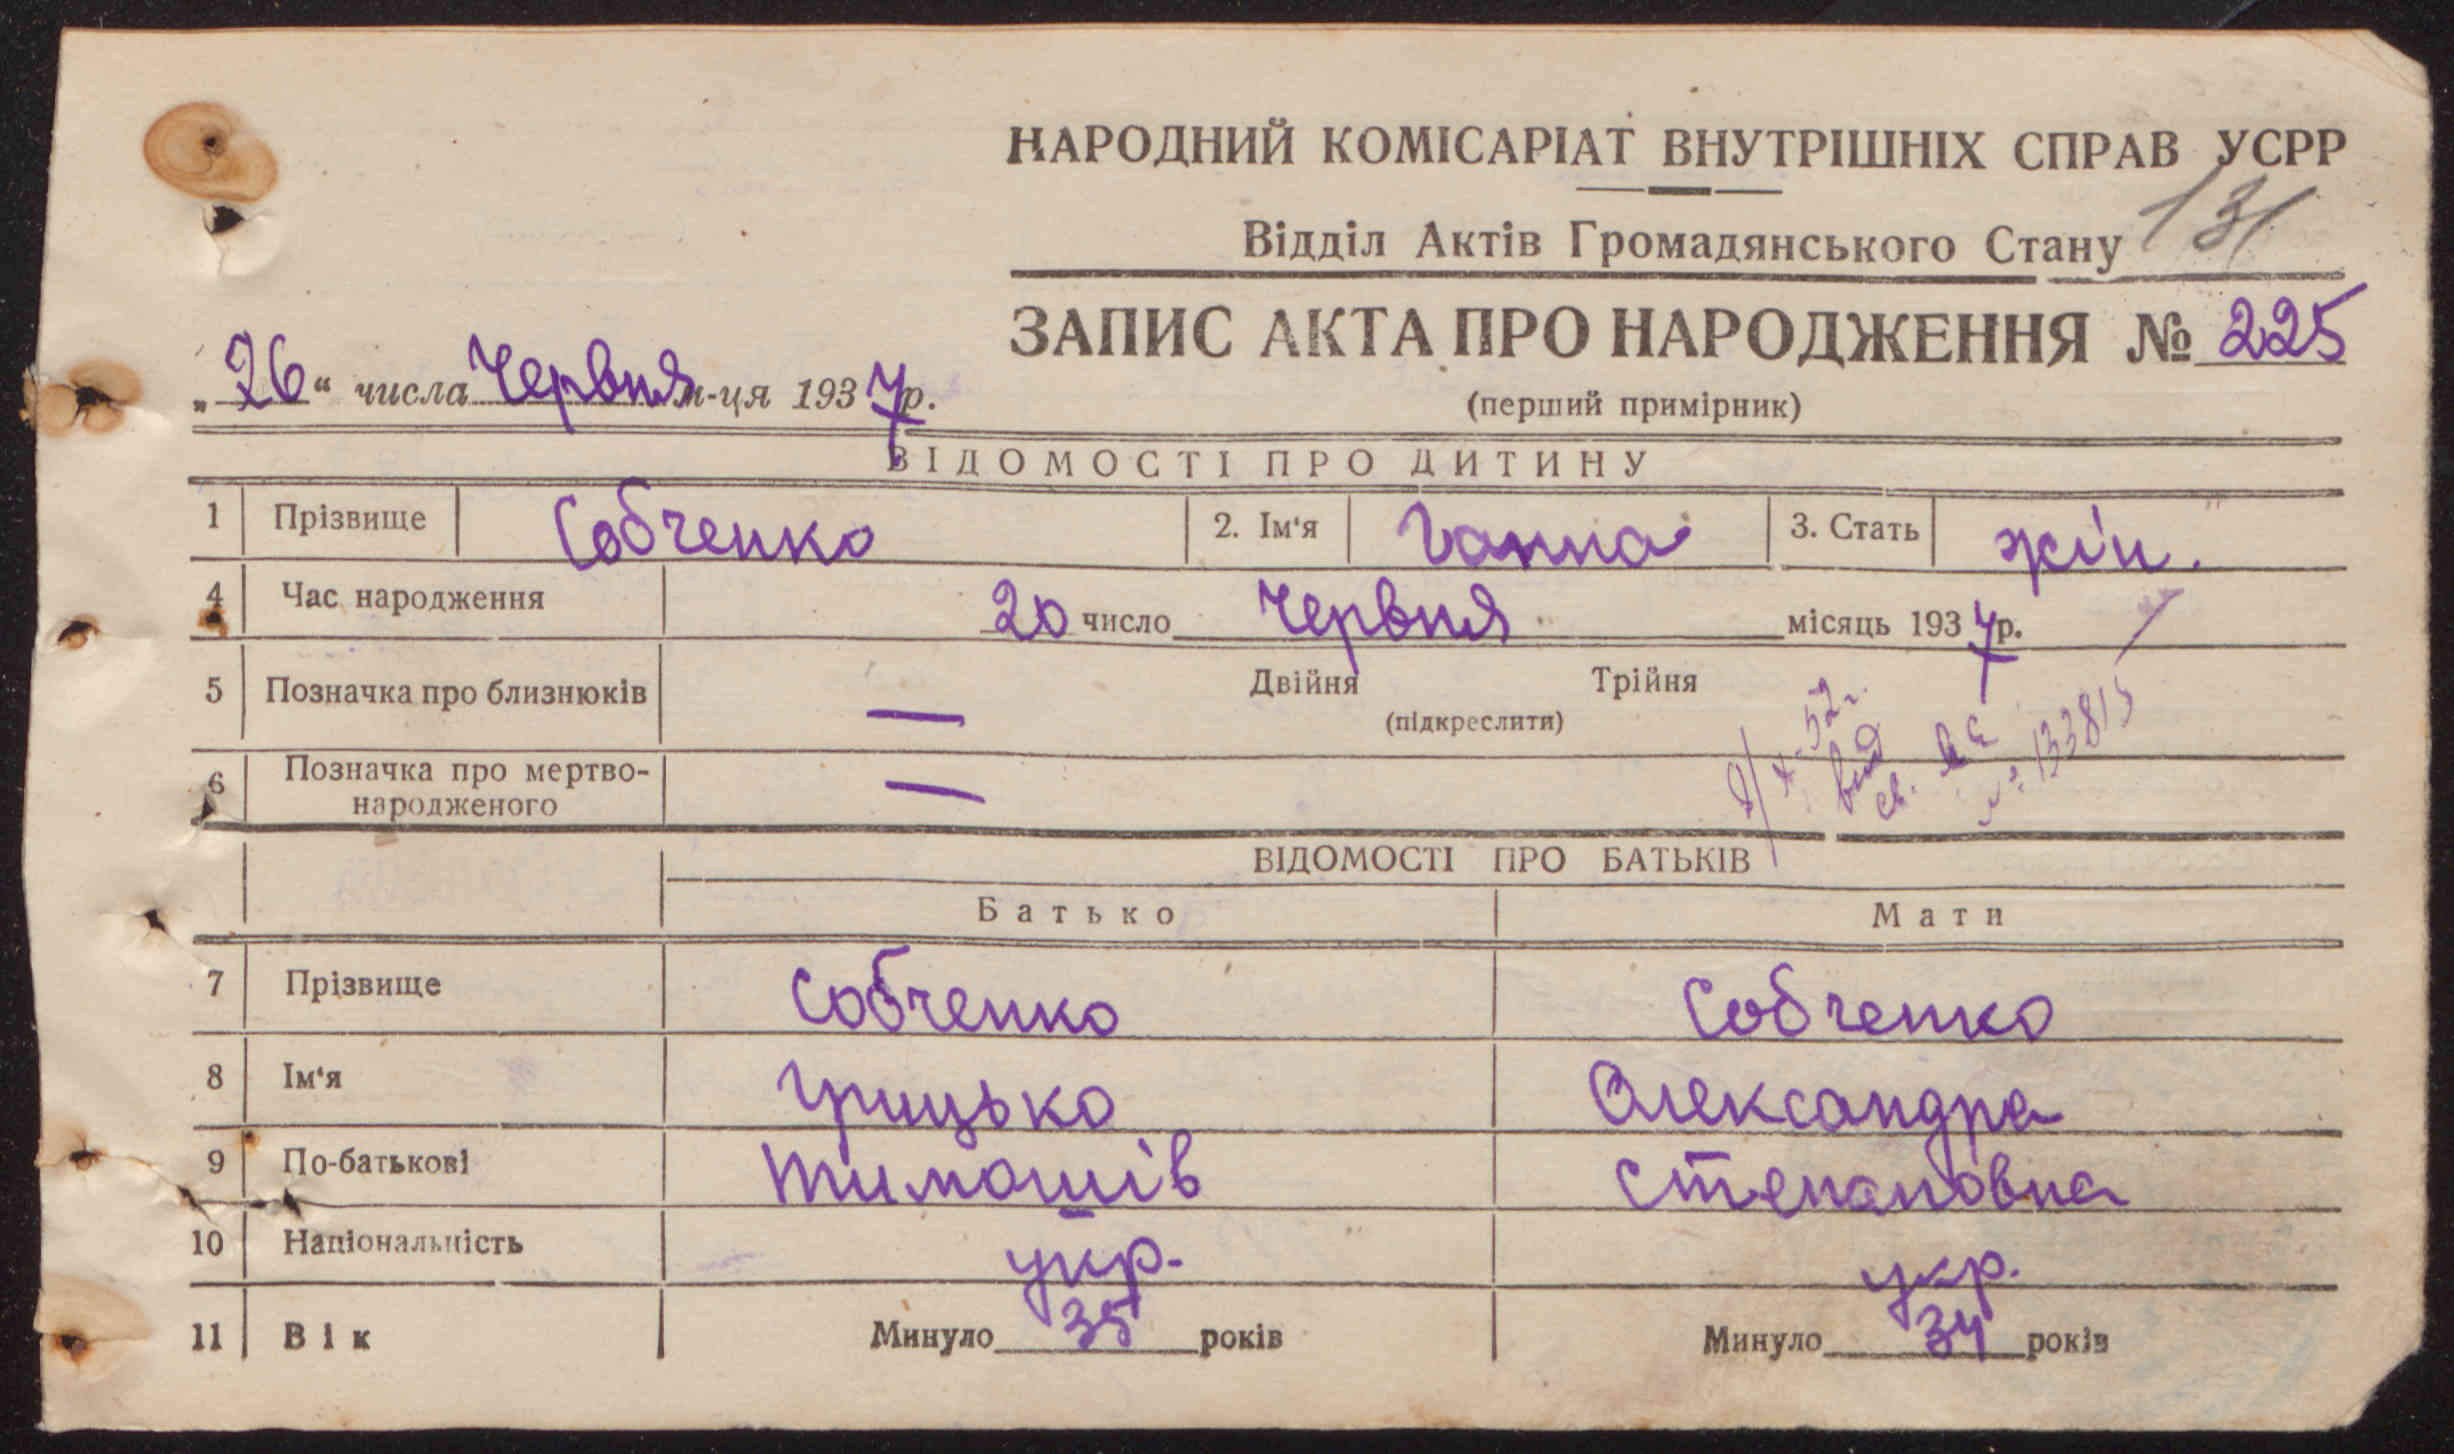 НАРОДНИЙ КОМІСАРІАТ ВНУТРІШНІХ СПРАВ УСРР
Відділ Актів Громадянського Стану 131
ЗАПИС АКТА ПРО НАРОДЖЕННЯ № 225
„26“ числа Червня м-ця 1937р.
(перший примірник)
ВІДОМОСТІ ПРО ДИТИНУ
1 Прізвище Собченко 2. Ім‘я Ганна 3. Стать жін.
4 Час народження 20 число Червня місяць 1937р.
5 Позначка про близнюків — Двійня Трійня
(підкреслити)
6 Позначка про мертво-
народженого —
52г.
выд
св.
№ 133815
ВІДОМОСТІ ПРО БАТЬКІВ
Батько Мати
7 Прізвище Собченко Собченко
8 Ім‘я Грицько Олександра
9 По-батькові Тимошів Степановна
10 Національність укр. укр.
11 Вік Минуло 35 років Минуло 34 років